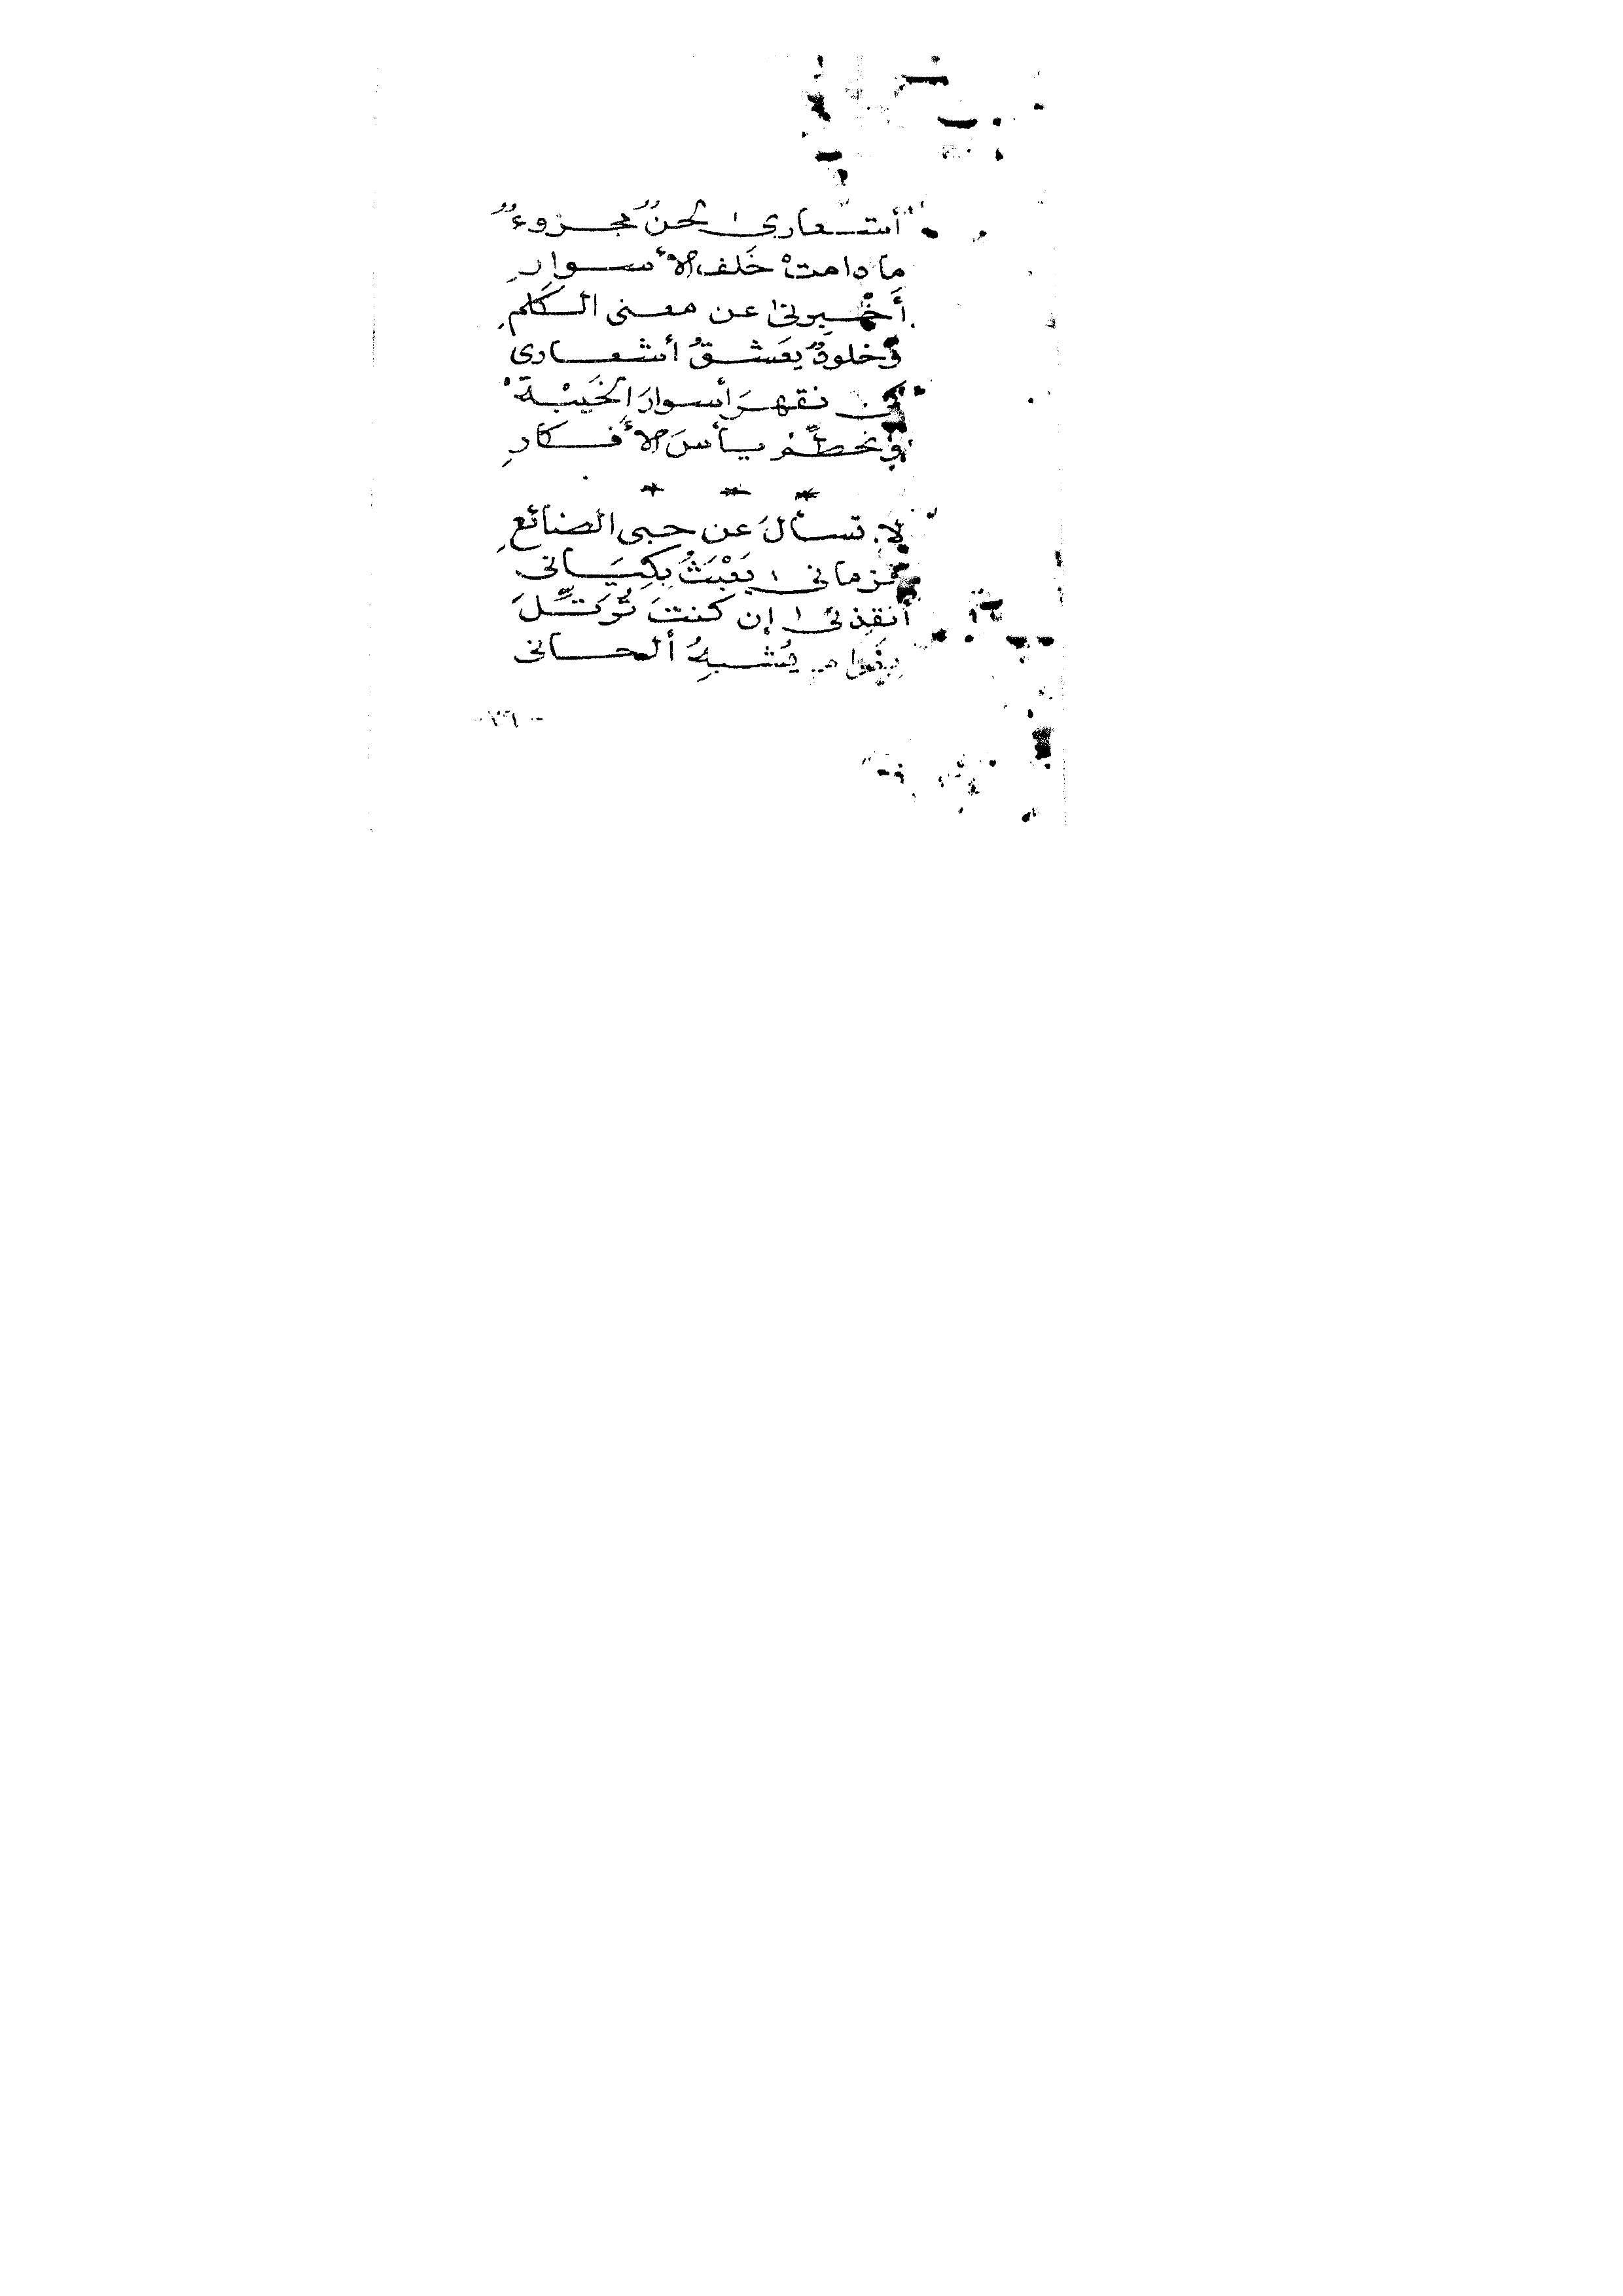 أشعارى لحنٌ مجزوءٌ
ما دامتْ خَلف الأسوارِ
أَخْبرونى عن معنى الكلمِ
وخلودٌ يعَشقُ أشعارى
كى نقهرَ أسوارَ الخَيْبة
ونحطِّمُ يأسَ الأفكارِ
* * *
لا تسألَ عن حبى الضائعِ
فزمانى يَعْبَثُ بِكِيَانى
أنقِذنى إن كنتَ تُرَتِّلَ
بِغَرامٍ يُشبِهُ ألحانى
- ٧٦ -